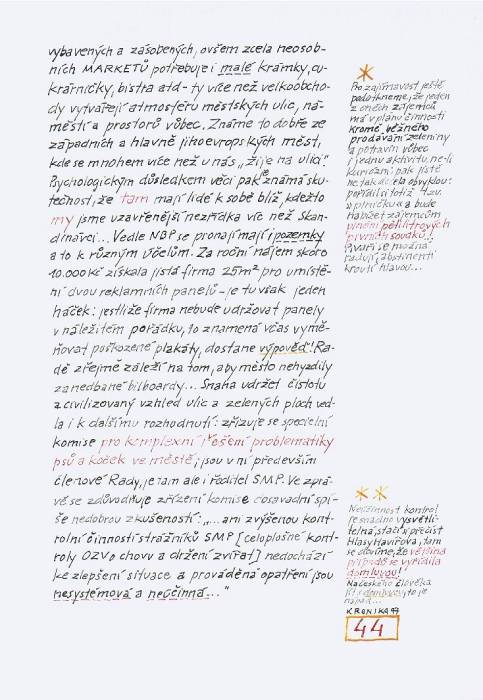 vybavených a zásobených, ovšem zcela neosob-
ních MARKETŮ potřebuje i malé krámky, cu-
krárničky, bistra atd - ty více než velkoobcho-
dy vytvářejí atmosféru městských ulic, ná-
městí a prostorů vůbec. Známe to dobře ze
západních a hlavně jihoevropských měst,
kde se mnohem více než u nás „žije na ulici".
Psychologickým důsledkem věci pak je známá sku-
tečnost, že tam mají lidé k sobě blíž, kdežto
my jsme uzavřenější nezřídka víc než Skan-
dinávci... Vedle NBP se pronajímají i pozemky
a to k různým účelům. Za roční nájem skoro
10.000 Kč získala jistá firma 25m² pro umístě-
ní dvou reklamních panelů - je tu však jeden
háček: jestliže firma nebude udržovat panely
v náležitém pořádku, to znamená včas vymě-
ňovat poškozené plakáty, dostane výpověď! Ra-
dě zřejmě záleží na tom, aby město nehyzdily
zanedbané bilboardy... Snaha udržet čistotu
a civilizovaný vzhled ulic a zelených ploch ved-
la i k dalšímu rozhodnutí: zřizuje se specielní
komise pro komplexní řešení problematiky
psů a koček ve městě; jsou v ní především
členové Rady, je tam ale i ředitel SMP. Ve zprá-
vě se zdůvodňuje zřízení komise dosavadní spí-
še nedobrou zkušeností: „... ani zvýšenou kont-
rolní činností strážníků SMP [celoplošné kont-
roly OZV o chovu a držení zvířat] nedochází
ke zlepšení situace a prováděná opatření jsou
nesystémová a neúčinná..."
Pro zajímavost ještě
podotkneme, že jeden
z oněch zájemců
má v plánu činnosti
kromě běžného
prodávání zeleniny
a potravin vůbec
i jednu aktivitu, ne-li
kuriózní pak jistě
ne tak docela obvyklou:
pořídil si totiž
plničku a bude
nabízet zájemcům
plnění pětilitrových
pivních soudků!
Pivaři se možná
radují, abstinenti
kroutí hlavou...
Neúčinnost kontrol
je snadno vysvětli-
telná, stačí si přečíst
Hlasy Havířova, tam
se dovíme, že většina
případů se vyřídila
domluvou!
Na českého člověka
jít s domluvou, to je
nápad...
KRONIKA 99
44